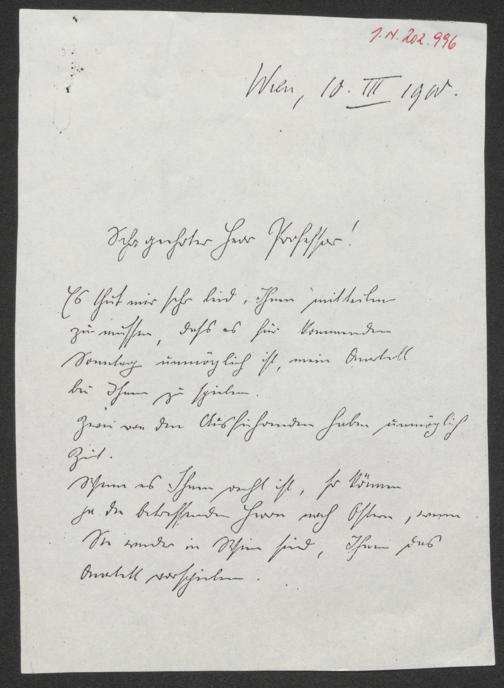 J.N. 202.996
Wien, 10. III 1900.
Sehr geehrter Herr Professor!
Es thut mir sehr leid, Ihnen mitteilen
zu müssen, dass es für kommenden
Sonntag unmöglich ist, mein Quartett
bei Ihnen zu spielen.
Zwei von den Ausführenden haben unmöglich
Zeit.
Wenn es Ihnen recht ist, so können
ja die betreffenden Herren nach Ostern, wenn
Sie wieder in Wien sind, Ihnen das
Quartett vorspielen.